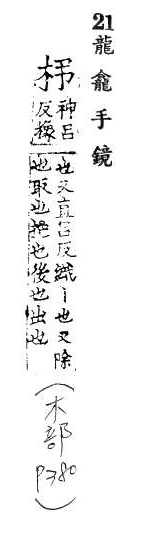 21龍龕手鏡
杼
神呂反橡
也又直呂反織丨也又除
也取也挹也後也出也
(木部 P380)